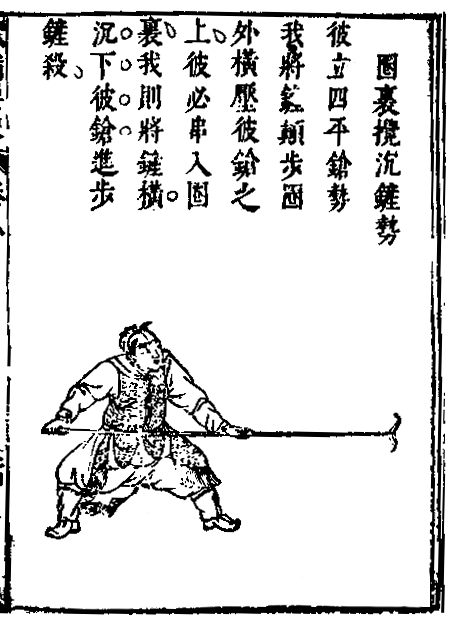 圈裏攪沉鏟勢
彼立四平鎗勢
我將鏟顛步圈
外橫壓彼鎗之
上彼必串入圈
裏我則將鏟橫
沉下彼鎗進步
鏟殺